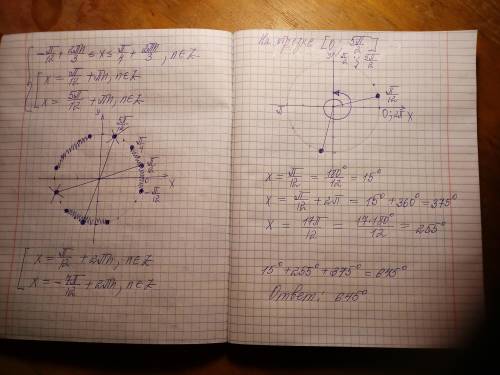 -π/12 + 2πn/3 ≤ x ≤ π/4 + 2πn/3, n∈Z
x = π/12 + πn, n∈Z
x = 5π/12 + πn, n∈Z
y
5π/12
X
-π/12
x = π/12 + 2πn, n∈Z
x = -7π/12 + 2πn, n∈Z
На отрезке [0; 5π/2]
y
π/2; 5π/2
π
π/12
0; 2π
X
x = π/12 = 180°/12 = 15°
x = π/12 + 2π = 15° + 360° = 375°
x = 17π/12 = 17·180°/12 = 255°
15° + 255° + 375° = 645°
Ответ: 645°